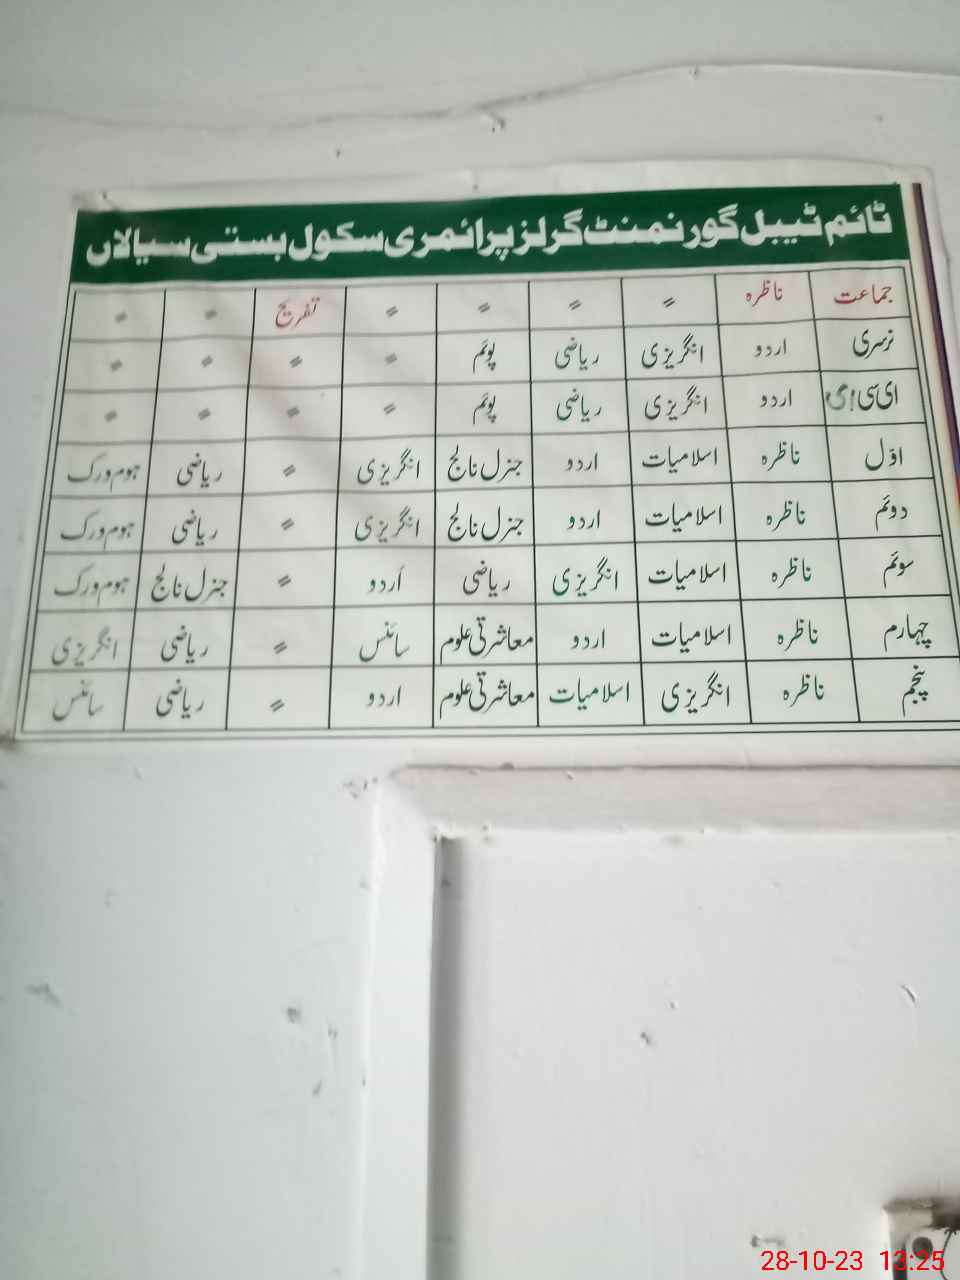 ٹائم ٹیبل گورنمنٹ گرلز پرائمری سکول بستی سیالاں
جماعت ناظرہ 〃 〃 〃 〃 تفریح 〃 〃
نرسری اردو انگریزی ریاضی پوئم 〃 〃 〃 〃
ای سی ای اردو انگریزی ریاضی پوئم 〃 〃 〃 〃
اوّل ناظرہ اسلامیات اردو جنرل نالج انگریزی 〃 ریاضی ہوم ورک
دوئم ناظرہ اسلامیات اردو جنرل نالج انگریزی 〃 ریاضی ہوم ورک
سوئم ناظرہ اسلامیات انگریزی ریاضی اُردو 〃 جنرل نالج ہوم ورک
چہارم ناظرہ اسلامیات اردو معاشرتی علوم سائنس 〃 ریاضی انگریزی
پنجم ناظرہ انگریزی اسلامیات معاشرتی علوم اردو 〃 ریاضی سائنس
28-10-23 13:25